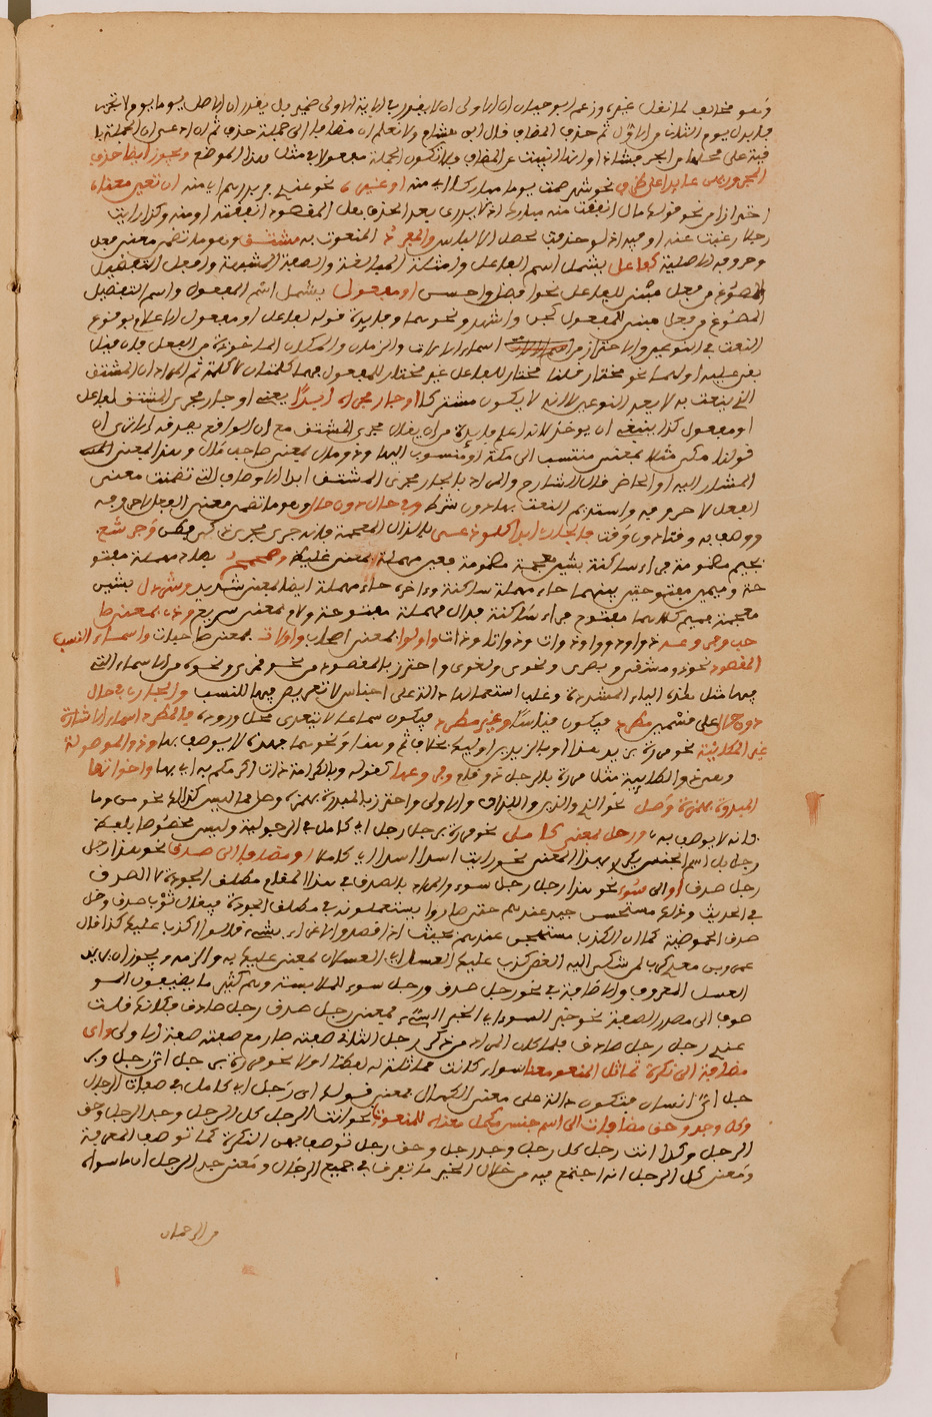 وهو مخالف لما نقل غيره وزعم ابو حيان ان الاولى ان لا يقدر في الاية الاولى ضمير بل يقدر ان الاصل يوما يوم لا تجزى
فابدل يوم الثاني من الاول ثم حذف المضاف قال ابن هشام ولا نعلم ان مضافا الى جملة حذف ثم ان ادعى ان الجملة با
قية على محلها من الجر فشاذ او انها انيبت عن المضاف فلا تكون الجملة مفعولا في مثل هذا الموضع ويجوز ايضا حذف
المجرور بمن عايدا على ظرف نحو شهر صمت يوما مباركا اي منه او غيره نحو عندي بر بدرهم اي منه ان تعين معناه
احترازا من نحو قولنا مال انفقت منه مباركا اذ لا يدرى بعد الحذف هل المقصود انفقته او منه وكذا رايت
رجلا رغبت عنه او فيه اذ لو حذف يحصل الالباس والمفرد المنعوت به مشتق وهو ما تضمن معنى فعل
وحروفه الاصلية كفاعل يشمل اسم الفاعل وامثلة المبالغة والصفة المشبهة وافعل التفضيل
المصوغ من فعل مبني للفاعل نحو افضل واحسن او مفعول يشمل اسم المفعول واسم التفضيل
المصوغ من فعل مبني للمفعول كجن واشهد ونحوهما وفايدة قوله لفاعل او مفعول الاعلام بوقوع
النعت في النوعين والاحتراز من اسماء الالات والزمان والمكان الماخوذة من الفعل فان قيل
بقي عليه اولهما نحو مختار قلنا مختار للفاعل غير مختار للمفعول فهما كلمتان لا كلمة ثم المراد ان المشتق
الذي ينعت به لا يعد النوعين لا انه لا يكون مشتركا او جار مجراه ابدا يعني او جار مجرى المشتق لفاعل
او مفعول كذا ينبغي ان يوخذ لانه اعلم فايدة من ان يقال مجرى المشتق مع ان الواقع يصدقه الا ترى ان
قولنا مكي مثلا بمعنى منتسب الى مكة او منسوب اليها وذو مال بمعنى صاحب مال وهذا المعنى
المشار اليه او الحاضر قال الشارح والمراد بالجار مجرى المشتق ابدا الاوصاف التي تضمنت معنى
الفعل لا حروفه واستديم النعت بها دون شرط وفي حال دون حال وهو ما تضمن معنى الفعل لا حروفه
ووصف به وقتا دون وقت فالجارى ابدا كلوذعي بالذال المعجمة فانه جرى مجرى ذكي فطن وجرشع
بجيم مضمومة فراء ساكنة بشين معجمة مضمومة فعين مهملة بمعنى غليظ وصمحمح بصاد مهملة مفتو
حة وميمين مفتوحتين بينهما حاء مهملة ساكنة وءاخره حاء مهملة ايضا بمعنى شديد وشمردل بشين
معجمة فميم كلاهما مفتوح فراء ساكنة فدال مهملة مفتوحة ولام بمعنى سريع وذى بمعنى صا
حب وفروعه ذوا وذوو وذات وذواتا وذوات واولوا بمعنى اصحاب واولات بمعنى صاحبات واسماء النسب
المقصود نحو دمشقي وبصرى ونحوى ولغوى واحترز بالمقصود من نحو قمرى ونحوه من الاسماء التي
فيها مثل هذه الياء المشددة وغلب استعمالها دالة على اجناس لا تعرض فيها للنسب والجارى في حال
دون حال على قسمين مطرد فيكون قياسا وغير مطرد فيكون سماعا لا يتعدى محل وروده فالمطرد اسماء الاشارة
غير المكانية نحو مررت بزيد هذا او بالزيدين اوليك بخلاف ثم وهذا ونحوهما فهذه لا يوصف بها وذو الموصولة
وهى ذو الطايية مثل مررت بالرجل ذو قام وفروعها كقوله وبالكرامة ذات اكرمكم به اى بها واخواتها
المبدوة بهمزة وصل نحو الذي والتي واللذان والاولى واحترز بالمبدوة بهمزة وصل مما ليس كذلك نحو من وما
فانه لا يوصف به ورجل بمعنى كامل نحو مررت برجل رجل اى كامل في الرجولية وليس مخصوصا بلفظ
رجل بل اسم الجنس يكرر بهذا المعنى نحو رايت اسدا اسدا اى كاملا او مضافا الى صدق نحو هذا رجل
رجل صدق او الى سوء نحو هذا رجل رجل سوء والمراد بالصدق في هذا المقام مطلق الجودة لا الصدق
في الحديث وذلك مستحسن جيد عندهم حتى صاروا يستعملونه في مطلق الجودة فيقال ثوب صدق وخل
صدق الحموضة كما ان الكذب مستهجن عندهم بحيث اذا قصدوا الاغراء بشيء قالوا كذب عليك كذا قال
عمرو بن معدى كرب لمن شكى اليه المغص كذب عليك العسل اى العسلان بمعنى عليك به والزمه ويجوز ان يريد
العسل المعروف والاضافة في نحو رجل صدق ورجل سوء للملابسة وهم كثيرا ما يضيفون المو
صوف الى مصدر الصفة نحو خبر السوء اى الخبر السيء فمعنى رجل صدق رجل صادق فكانك قلت
عندى رجل رجل صادق فلما كان المراد من ذكر رجل الثاني صفته صار مع صفته صفة للاول واى
مضافة الى نكرة تماثل المنعوت معنى سواء كانت مماثلة له لفظا او لا نحو مررت برجل اى رجل وبر
جل اى انسان فتكون دالة على معنى الكمال فمعنى قولك اى رجل اى كامل في صفات الرجال
وكل وجد وحق مضافات الى اسم جنس مكمل معناه للمنعوت نحو انت الرجل كل الرجل وجد الرجل وحق
الرجل وكذا انت رجل كل رجل وجد رجل وحق رجل توصف بهن النكرة كما توصف المعرفة
ومعنى كل الرجل انه اجتمع فيه من خلال الخير ما تفرق في جميع الرجال ومعنى جد الرجل ان ما سواه